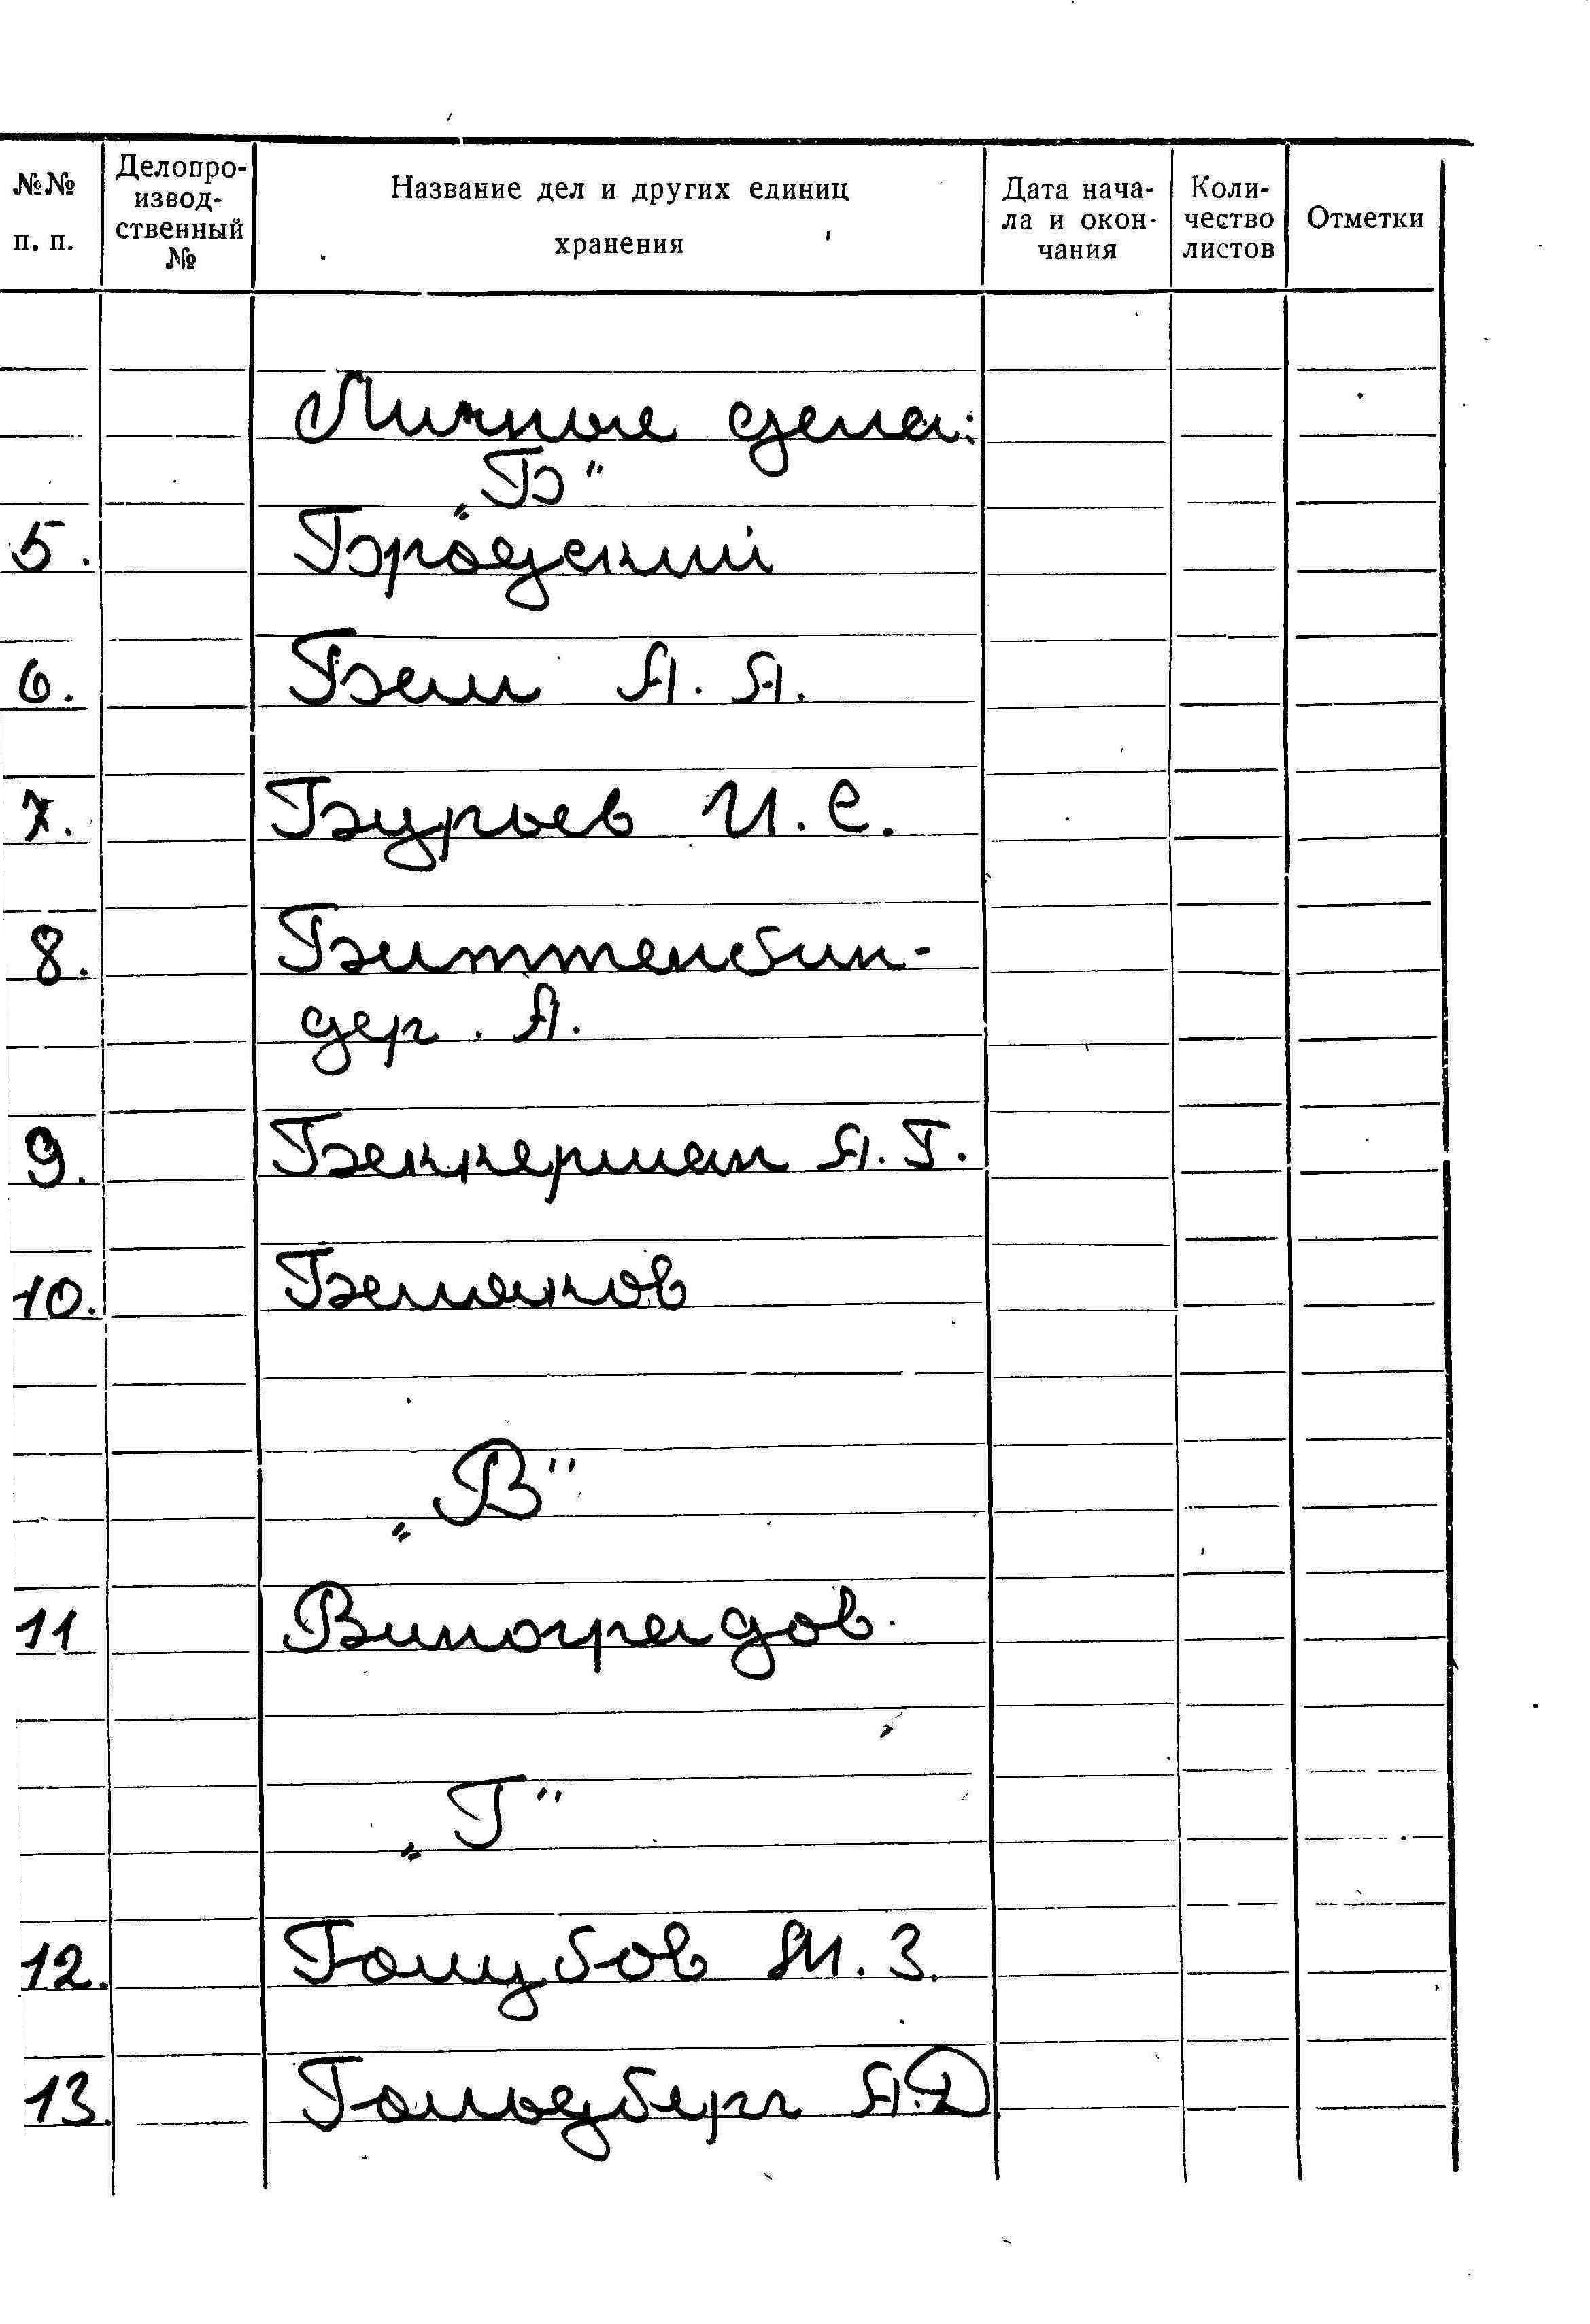 №№ п. п. Делопро-изводственный № Название дел и других единиц хранения Дата начала и окончания Количество листов Отметки
Личные дела:
„Б"
5. Бродский
6. Беш А. А.
7. Бурьев И. С.
8. Биттенбин-
дер. А.
9. Беккерман А. Г.
10. Беляков
„В"
11 Виноградов.
„Г"
12. Голубов М. З.
13. Гольдберг А. Д